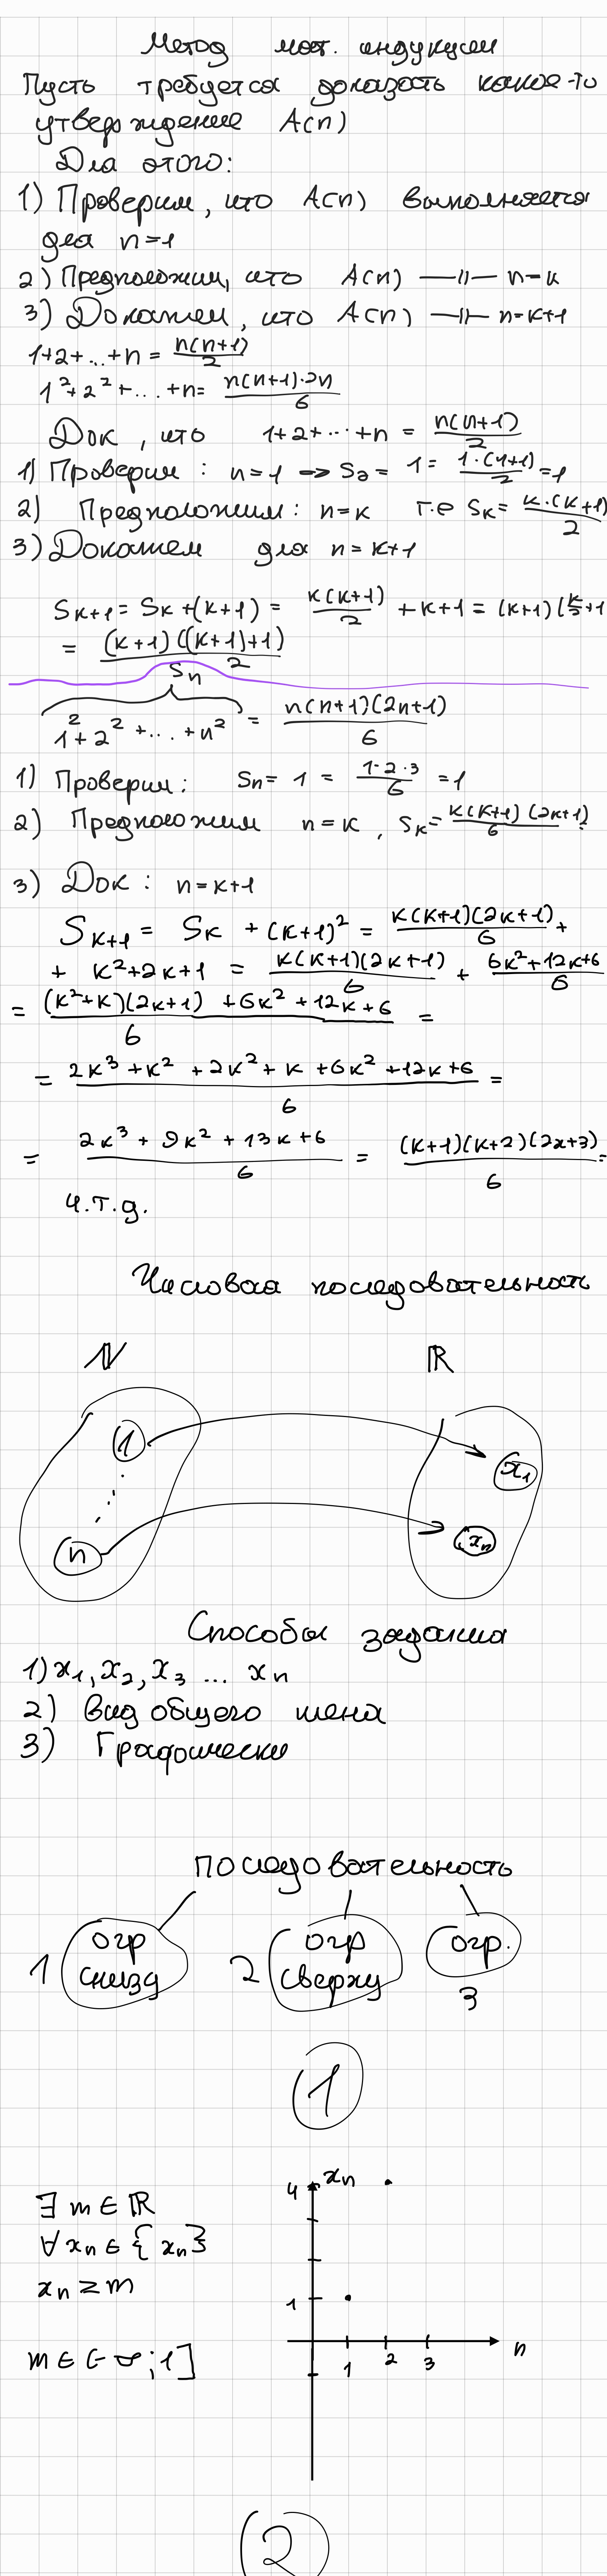 Метод мат. индукции
Пусть требуется доказать какое-то
утверждение A(n)
Для этого:
1) Проверим, что A(n) выполняется
для n=1
2) Предположим, что A(n) —||— n=k
3) Докажем, что A(n) —||— n=k+1
1+2+...+n = n(n+1)/2
1²+2²+...+n = n(n+1)·2n/6
Док, что 1+2+...+n = n(n+1)/2
1) Проверим: n=1 => S₁ = 1 = 1·(1+1)/2 = 1
2) Предположим: n=k т.е Sk = k·(k+1)/2
3) Докажем для n=k+1
Sk+1 = Sk+(k+1) = k(k+1)/2 + k+1 = (k+1)(k/2+1
= (k+1)((k+1)+1)/2
Sn
1²+2²+...+n² = n(n+1)(2n+1)/6
1) Проверим: Sn = 1 = 1·2·3/6 = 1
2) Предположим n=k, Sk = k(k+1)(2k+1)/6
3) Док: n=k+1
Sk+1 = Sk + (k+1)² = k(k+1)(2k+1)/6 +
+ k²+2k+1 = k(k+1)(2k+1)/6 + 6k²+12k+6/6
= (k²+k)(2k+1)+6k²+12k+6/6 =
= 2k³+k²+2k²+k+6k²+12k+6/6 =
= 2k³+9k²+13k+6/6 = (k+1)(k+2)(2x+3)/6 =
ч.т.д.
Числовая последовательность
N R
1 x₁
n xn
Способы задания
1) x₁, x₂, x₃ ... xn
2) Вид общего члена
3) Графически
последовательность
1 огр снизу 2 огр сверху огр. 3
1
4 xn
∃ m ∈ R
∀ xn ∈ {xn}
xn ≥ m
1
m ∈ (-∞; 1]
1 2 3 n
2